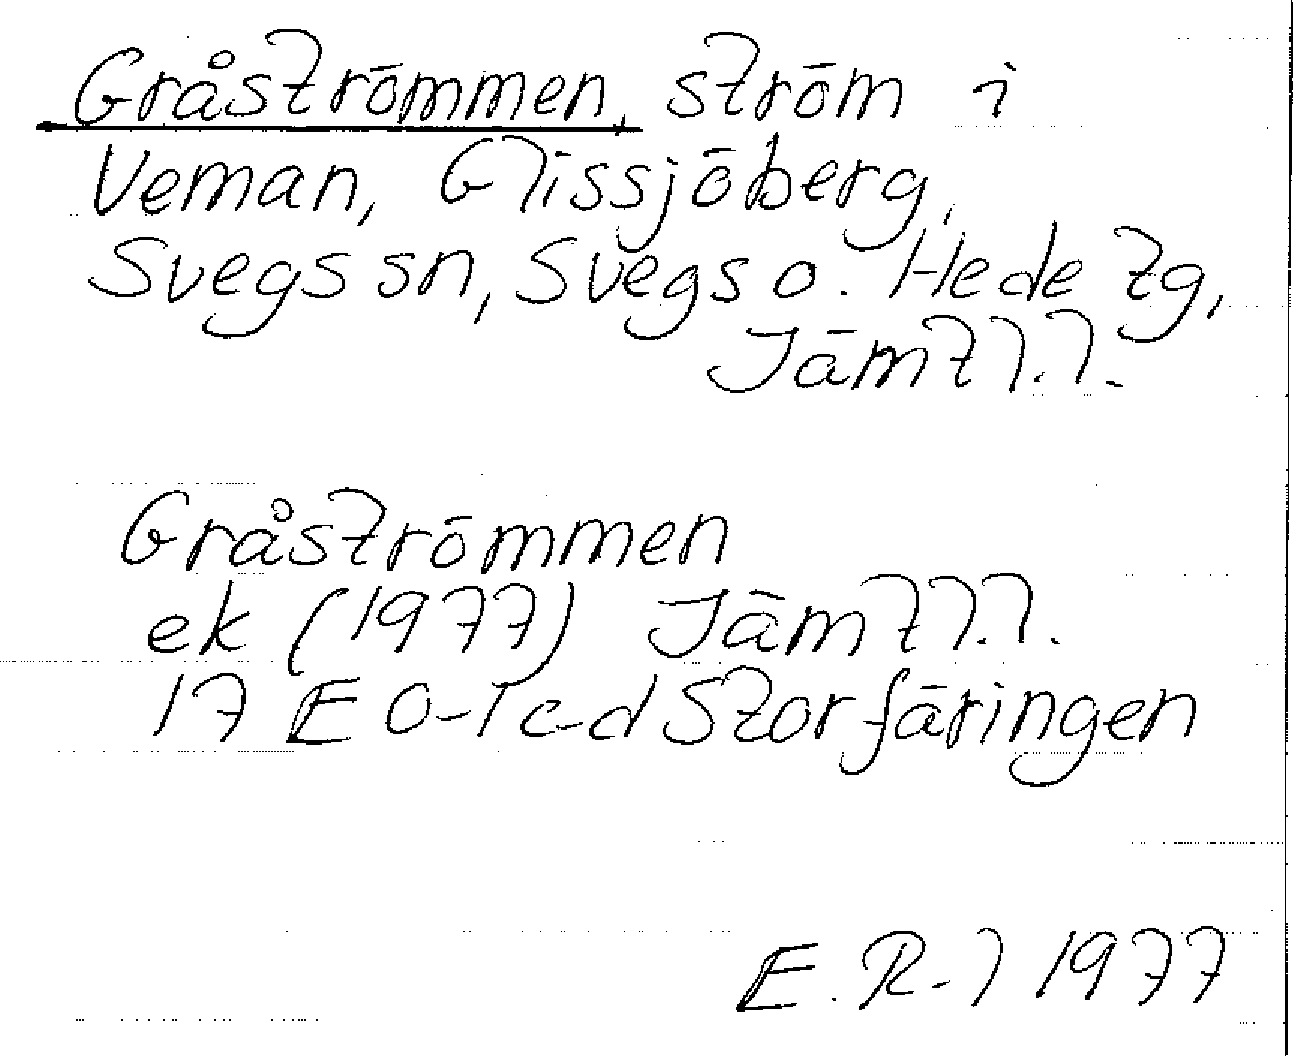 Gråströmmen, ström i
Veman, Glissjöberg,
Svegs sn, Svegs o. Hede tg,
Jämtl.l.
Gråströmmen
ek (1977) Jämtl.l.
17 E 0-1 c-d Storfäringen
E. R-l 1977